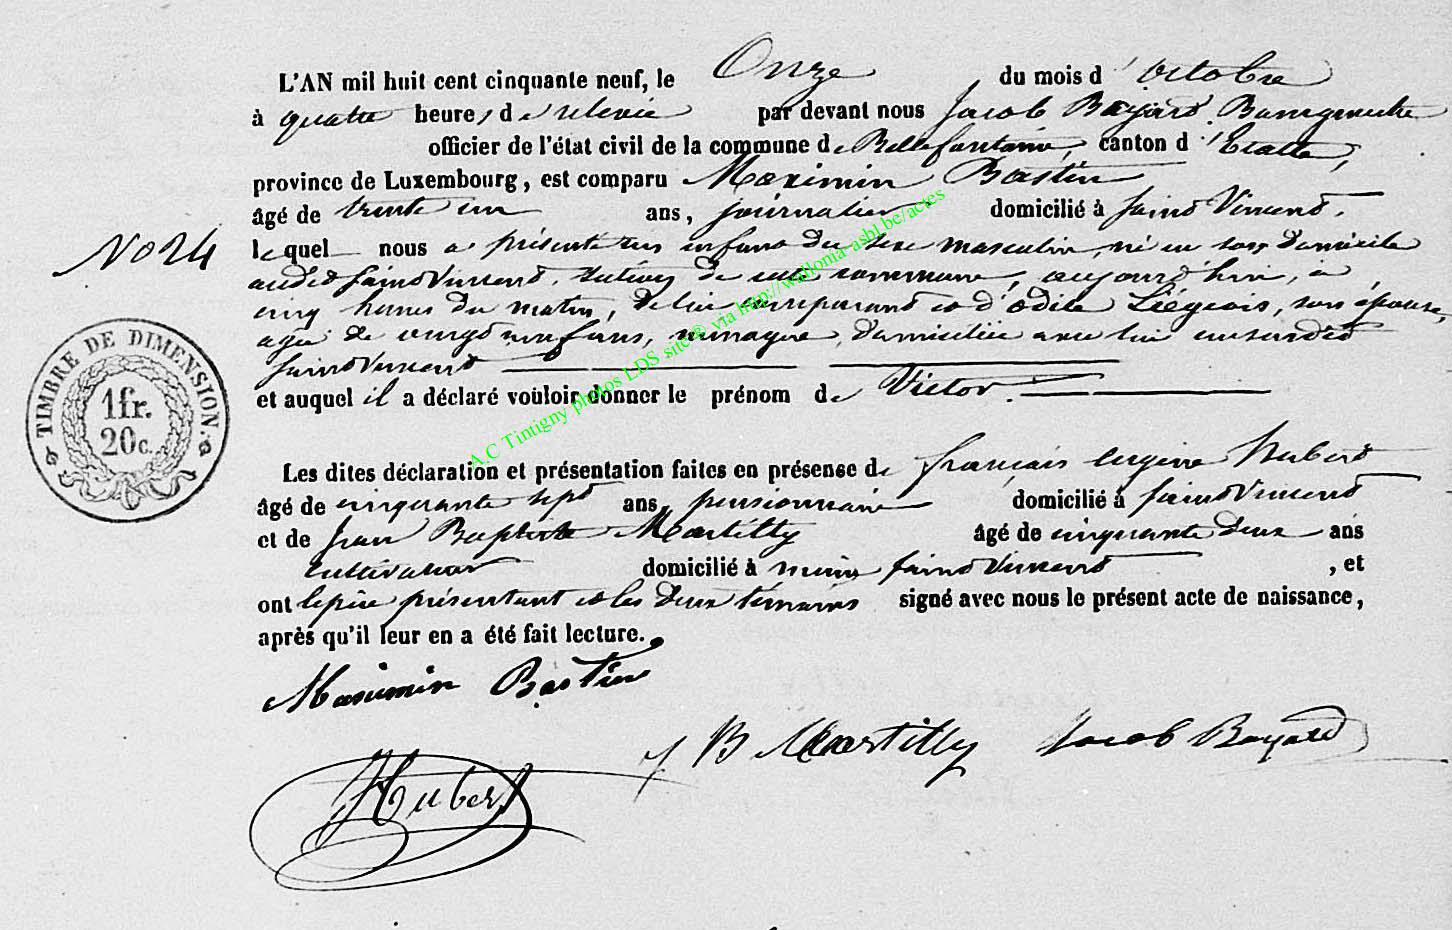 L'AN mil huit cent cinquante neuf, le Onze du mois d'octobre
à quatre heures de relevée par devant nous Jacob Bayard, Bourgmestre
officier de l'état civil de la commune de Bellefontaine, canton d'Etalle,
province de Luxembourg, est comparu Maximin Bastin
âgé de trente un ans, journalier domicilié à Saint Vincent,
No 24 lequel nous a présenté un enfant du sexe masculin, né en son domicile
audit Saint Vincent, section de cette commune, aujourd'hui, à
cinq heures du matin, de lui comparant et d'Odile Liégeois, son épouse,
agée de vingt neuf ans, ménagère, domiciliée avec lui susdit
Saint Vincent
et auquel il a déclaré vouloir donner le prénom de Victor.
TIMBRE DE DIMENSION.
1fr.
20c.
Les dites déclaration et présentation faites en présense de françois eugène Hubert
âgé de cinquante sept ans, pensionnaire domicilié à Saint Vincent
et de Jean Baptiste Martilly âgé de cinquante deux ans
cultivateur domicilié à même Saint Vincent, et
ont le père présentant et les deux témoins signé avec nous le présent acte de naissance,
après qu'il leur en a été fait lecture.
Maximin Bastin
J B Martilly Jacob Bayard
Hubert
A.C Tintigny photos LDS site® via http://wallonia-asbl.be/actes